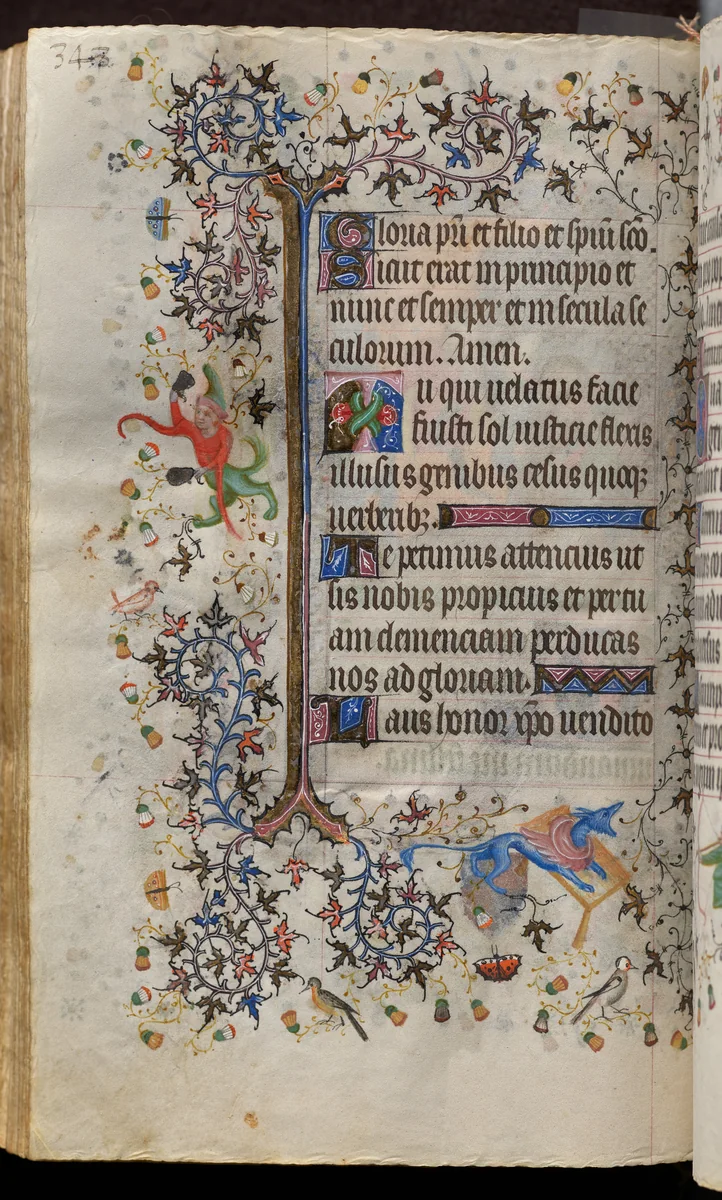 343
Gloria pri et filio et spiu sco.
Sicut erat in principio et
nunc et semper et in secula se
culorum. Amen.
Qui uelatus facie
fuisti sol iusticie flexis
illusus genibus cesus quoq;
uerberib;.
Te petimus attencius ut
sis nobis propicius et per tu
am clemenciam perducas
nos ad gloriam.
Laus honor xpo uendito